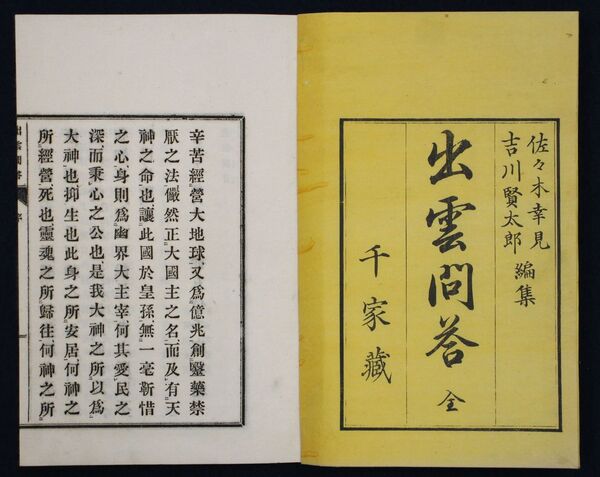 佐々木幸見
吉川賢太郎
編集
出雲問答 全
千家藏
辛苦經營大地球、又爲億兆創醫藥禁
厭之法、儼然正大國主之名、而及有天
神之命也、讓此國於皇孫、無一毫靳惜
之心、身則爲幽界大主宰、何其愛民之
深而秉心之公也、是我大神之所以爲
大神也、抑生也此身之所安居、何神之
所經營、死也靈魂之所歸往、何神之所
出雲問答 序